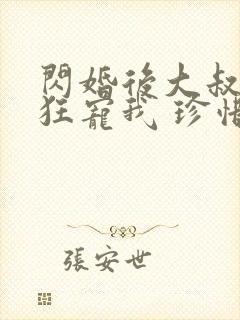 閃婚後大叔
狂寵我 珍惜
張安世